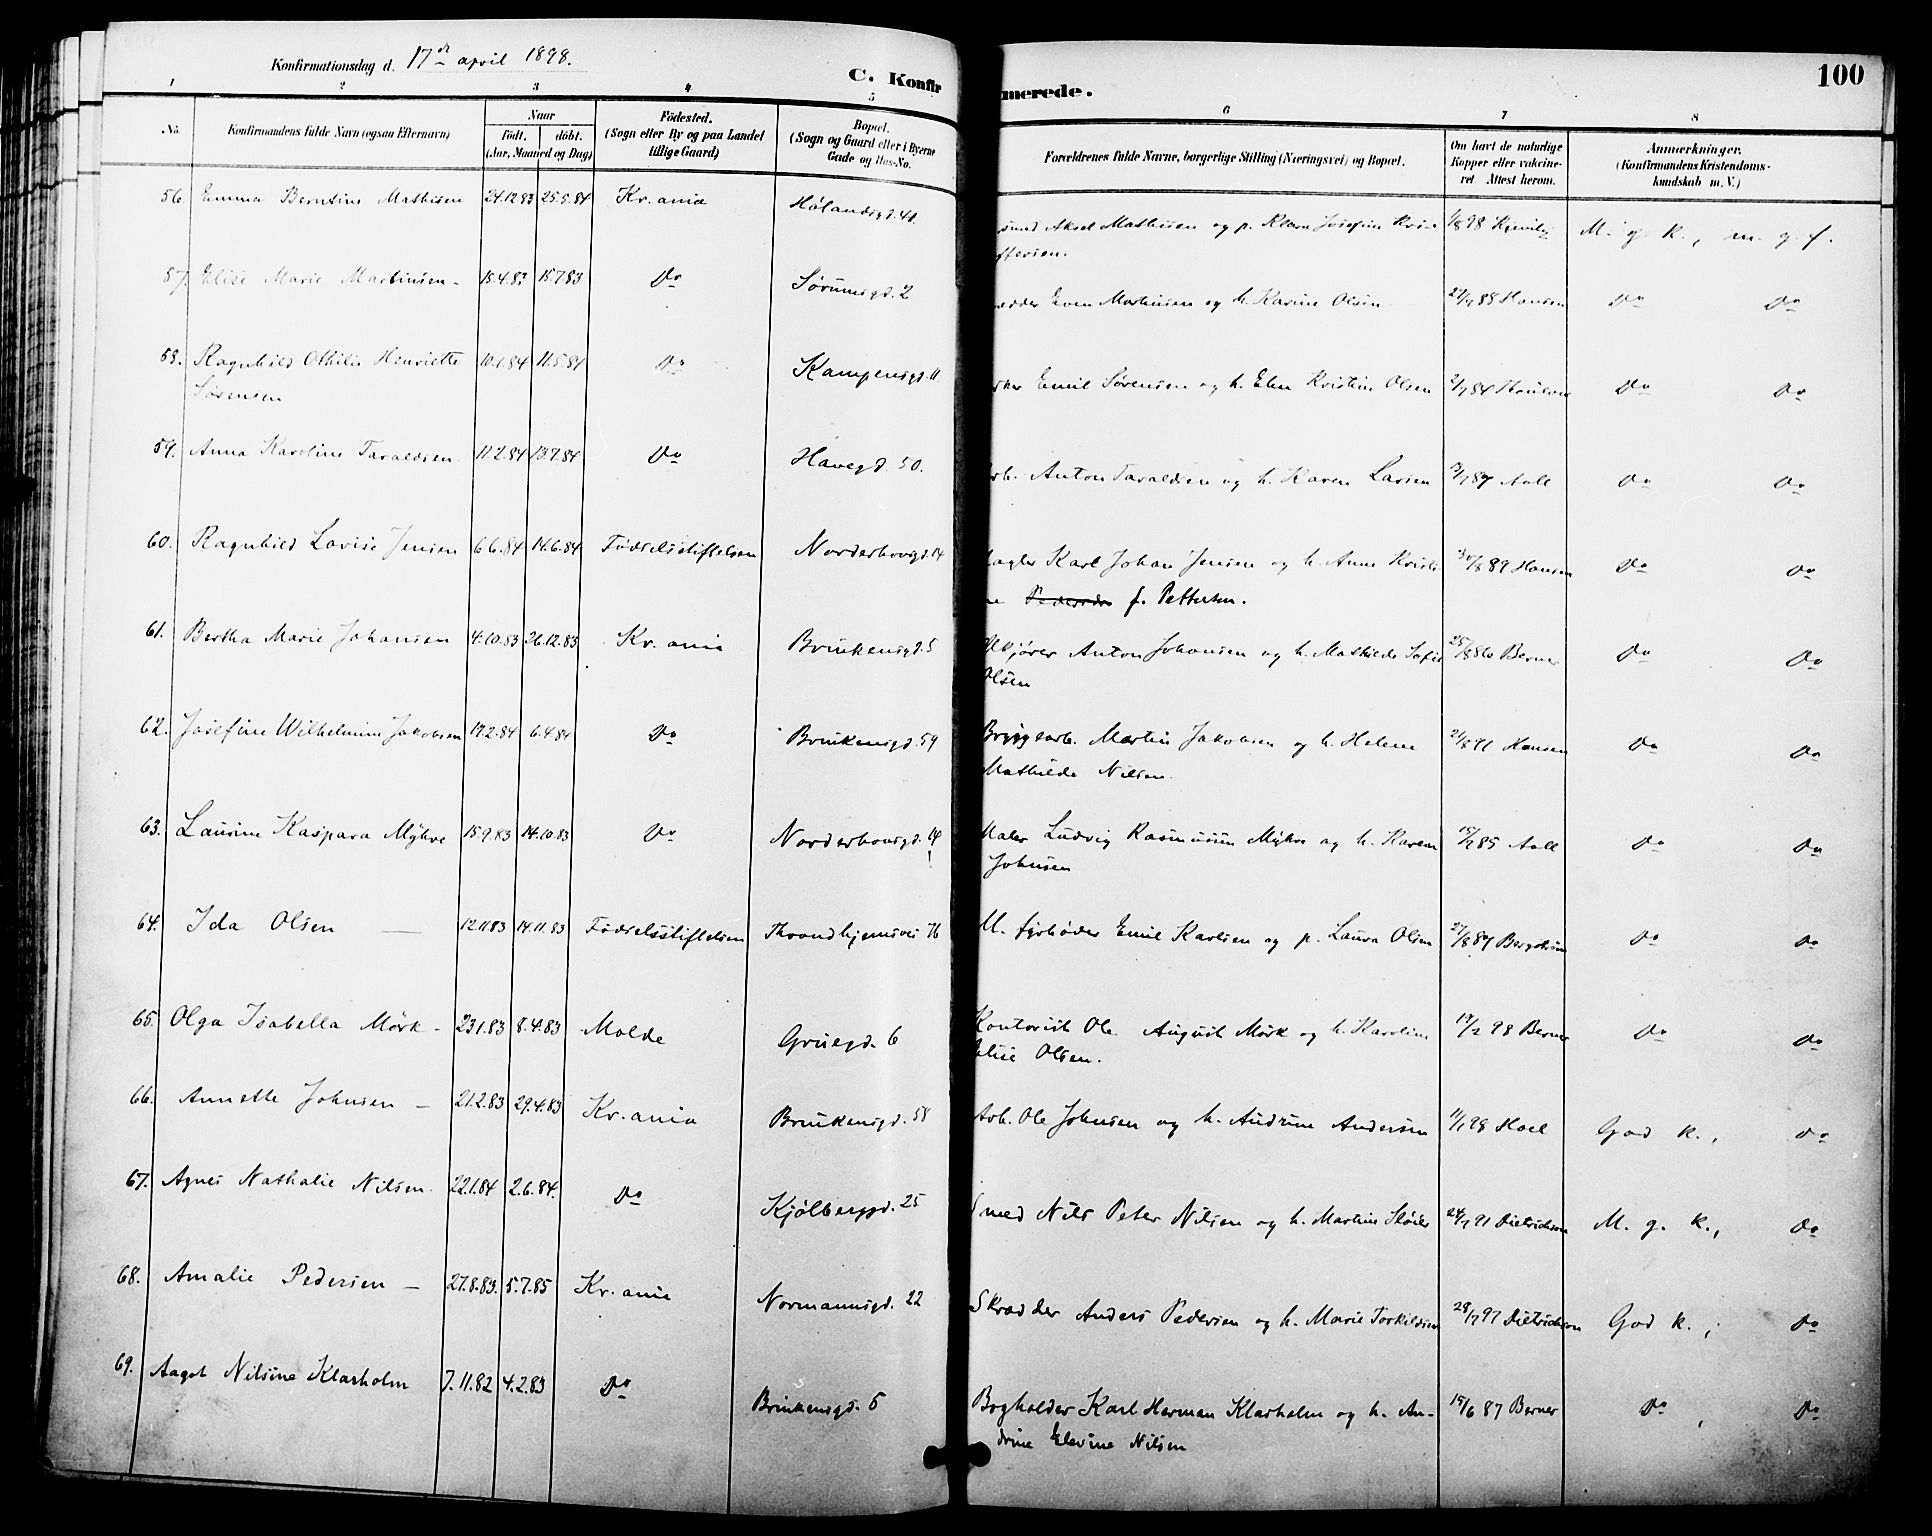 Konfirmationsdag d. 17de april 1898.
C. Konfir
merede.
100
1 2 3 4 5 6 7 8
No.
Konfirmandens fulde Navn (ogsaa Efternavn)
Naar
födt. döbt.
(Aar, Maaned og Dag)
Födested.
(Sogn eller By og paa Landet
tillige Gaard)
Bopæl.
(Sogn og Gaard eller i Byerne
Gade og Hus-No.
Forældrenes fulde Navne, borgerlige Stilling (Næringsvei) og Bopæl.
Om havt de naturlige
Kopper eller vakcine-
ret Attest herom.
Anmærkninger.
(Konfirmandens Kristendoms-
kundskab m. V.)
56. Emma Berntine Mathisen 24.12.83 25.5.84 Kr.ania Hølandsgd. 41. Aksel Mathisen og p. Klara Josefine 98 M. g. k., m. g. f.
57. Elise Marie Martinsen 15.4.83 15.7.83 Do Sørumsgd. 2 Even Martinsen og h. Karine Olsen 88 Hansen Do Do
58. Ragnhild Othilie Henriette 10.1.84 11.5.84 Do Kampensgd. 11 Emil Sørensen og h. Kristine Olsen 84 Do Do
Sørensen
59. Anna Karoline Taraldsen 11.2.84 13.7.84 Do Havegd. 50. Anton Taraldsen og h. Karen Larsen Aall Do Do
60. Ragnhild Lovise Jensen 6.6.84 14.6.84 Fødselsstiftelsen Norderhovsgd. 14 Karl Johan Jensen og h. Anne Kristi 89 Hansen Do Do
ne f. Pettersen.
61. Bertha Marie Johansen 4.10.83 26.12.83 Kr.ania Brinkensgd. 5 Anton Johansen og h. Mathilde Sofie 25/8 86 Berner Do Do
Olsen
62. Josefine Wilhelmine Jakobsen 17.2.84 6.4.84 Do Brinkensgd. 59 Bryggearb. Martin Jakobsen og h. Helene 21/8 91 Hansen Do Do
Mathilde Nilsen
63. Laurine Kaspara Myhre 15.9.83 14.10.83 Do Norderhovsgd. 14 Maler Ludvig Rasmussen Myhre og h. Karen 85 Aall Do Do
Johnsen
64. Ida Olsen 12.11.83 14.11.83 Fødselsstiftelsen Throndhjemsvei 76 fyrbøder Emil Karlsen og p. Laura Olsen Do Do
65. Olga Isabella Mörk 23.1.83 8.4.83 Molde Gruegd. 6 Kontorist Ole August Mörk og h. Karoline 98 Berner Do Do
Elise Olsen.
66. Annette Johnsen 21.2.83 29.4.83 Kr.ania Brinkensgd. 58 Arb. Ole Johnsen og h. Andrine Andersen 98 God k., Do
67. Agnes Nathalie Nilsen 22.1.84 2.6.84. Do Kjölberggd. 25 Smed Nils Peter Nilsen og h. Martine 91 Dietrichson M. g. k., Do
68. Amalie Pedersen 27.8.83. 5.7.85 Kr.ania Normannsgd. 22 Skrædder Anders Pedersen og h. Marie Torkildsen 28/7 97 Dietrichson God k., Do
69. Aagot Nilsine Klarholm 7.11.82 4.2.83 Do Brinkensgd. 5 Bogholder Karl Herman Klarholm og h. An- 15/6 87 Berner Do, Do
drine Elevine Nilsen